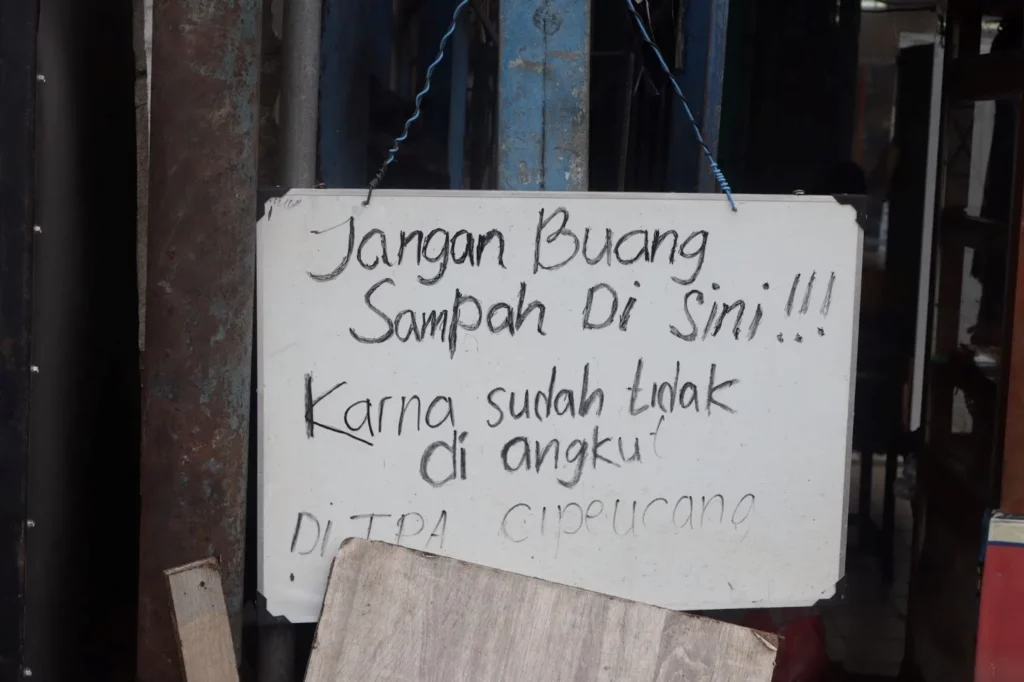 Jangan Buang
Sampah Di Sini !!!
Karna sudah tidak
di angkut
Di TPA Cipeucang